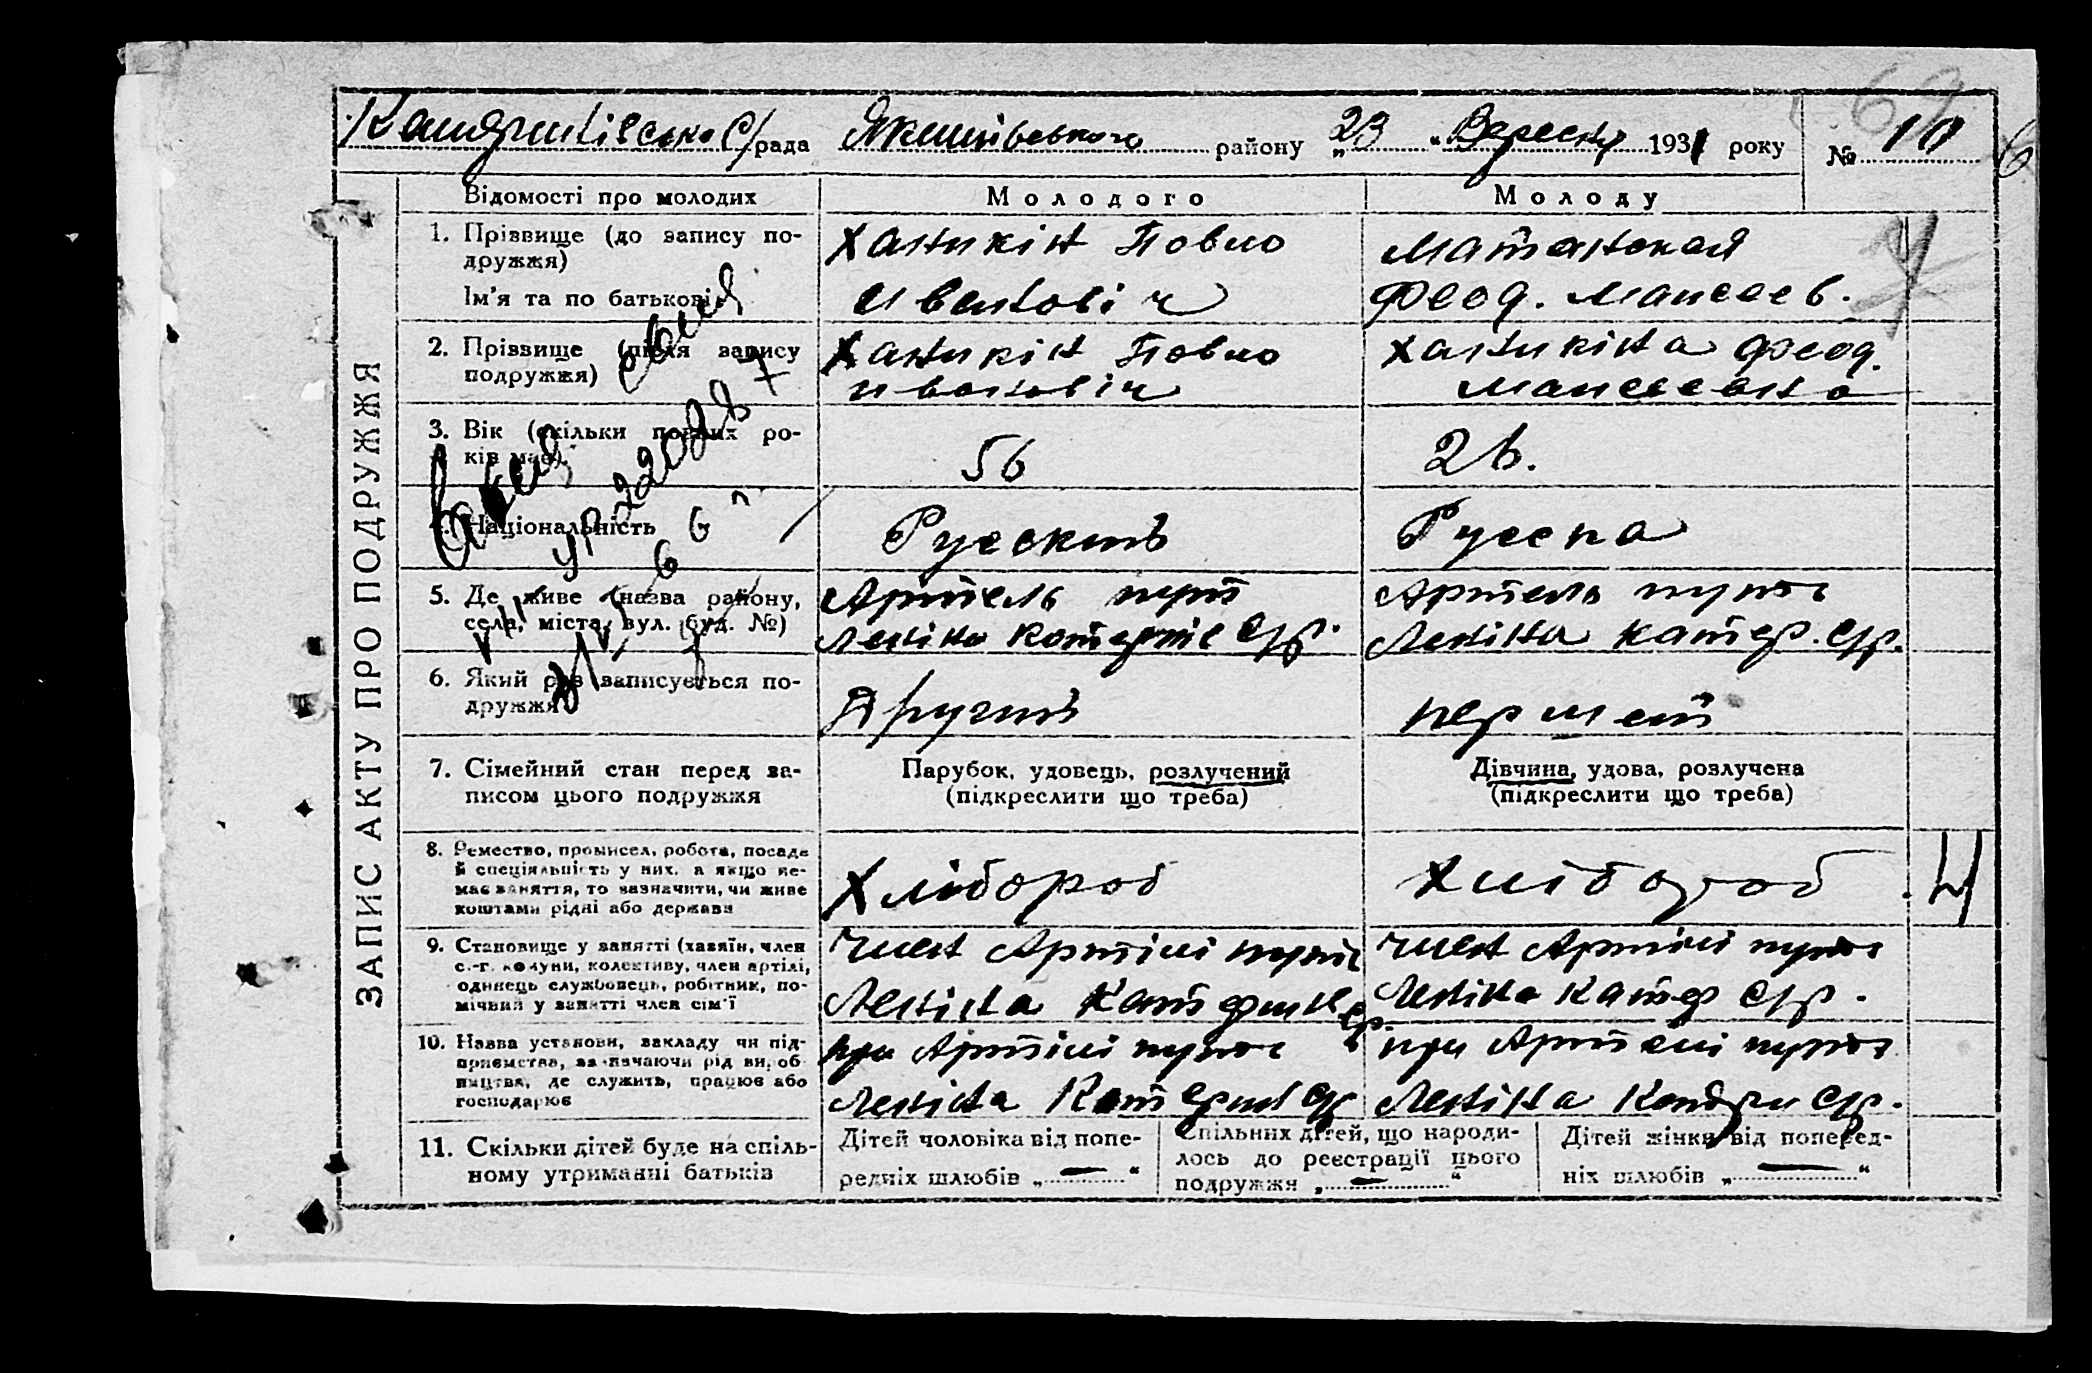 рада Якимівського району „23" Вересня 1931 року № 10
ЗАПИС АКТУ ПРО ПОДРУЖЖЯ
Відомості про молодих
Молодого
Молоду
1. Прізвище (до запису по-
дружжя)
Ім'я та по батькові
Ханикін Повло
Ивановіч
Матанская
Феод. Мансеев.
2. Прізвище (після запису
подружжя)
Ханикін Повло
Ивановіч
Ханикіна Феод.
Мансеевна
3. Вік (скільки повних ро-
ків має)
56
26.
4. Національність
Русский
Русска
5. Де живе (назва району,
села, міста, вул. буд. №)
Артель
Леніна С/р.
Артель
Леніна С/р.
6. Який раз записується по-
дружжя
Другий
перший
7. Сімейний стан перед за-
писом цього подружжя
Парубок, удовець, розлучений
(підкреслити що треба)
Дівчина, удова, розлучена
(підкреслити що треба)
8. Ремество, промисел, робота, посада
й спеціяльність у них, а якщо не-
має заняття, то зазначити, чи живе
коштами рідні або держави
Хлібороб
Хлібороб
9. Становище у занятті (хазяїн, член
с.-г. комуни, колективу, член артілі,
одинець службовець, робітник, по-
мічний у занятті член сім'ї
член Артілі
Леніна
член Артілі
Леніна С/р.
10. Назва установи, закладу чи під-
приємства, зазначаючи рід ви.об-
ництва, де служить, працює або
господарює
при Артілі
Леніна
при Артелі
Леніна С/р.
11. Скільки дітей буде на спіль-
ному утриманні батьків
Дітей чоловіка від попе-
редніх шлюбів „—"
Спільних дітей, що народи-
лось до реєстрації цього
подружжя „—"
Дітей жінки від поперед-
ніх шлюбів „—"